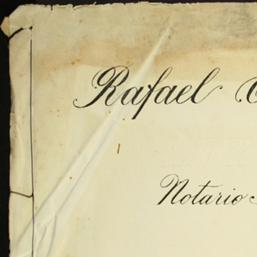 Rafael
Notario